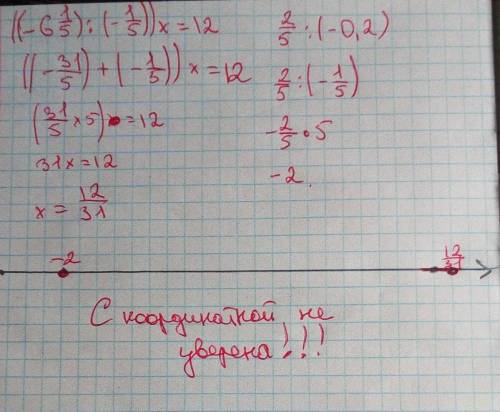 ((-6 1/5) : (-1/5)) x = 12
((-31/5) + (-1/5)) x = 12
(31/5 × 5) x = 12
31x = 12
x = 12/31
2/5 : (-0,2)
2/5 : (-1/5)
-2/5 • 5
-2.
-2
12/31
С координатной не
уверена!!!